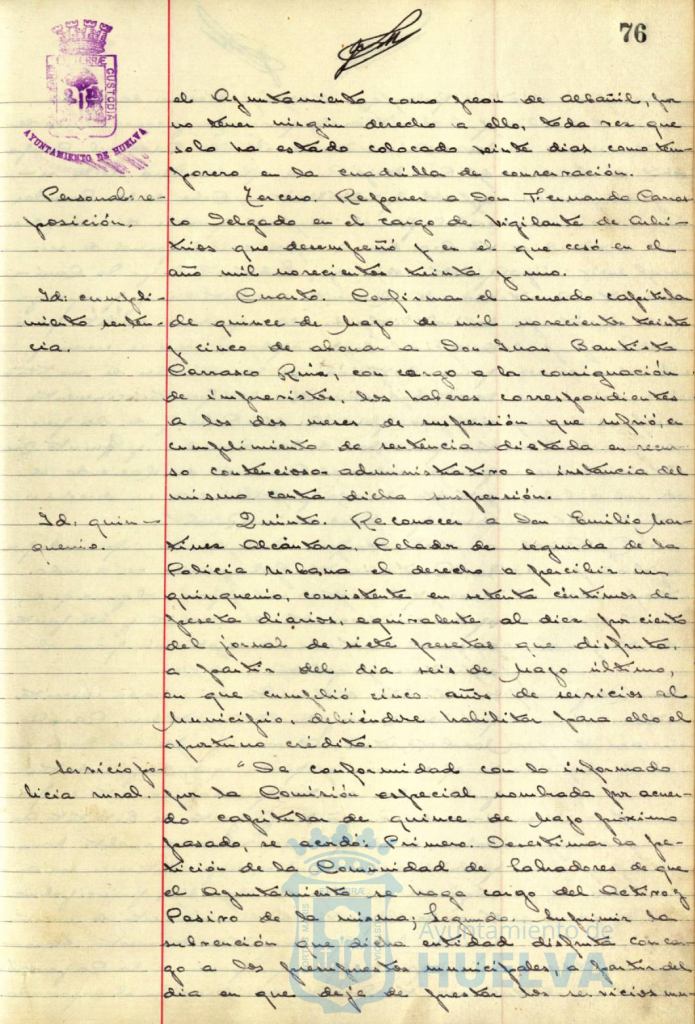 76
PORTUS MARIS ET TERRÆ CUSTODIA
AYUNTAMIENTO DE HUELVA
el Ayuntamiento como peon de albañil, por
no tener ningún derecho a ello, toda vez que
solo ha estado colocado veinte dias como tem-
porero en la cuadrilla de conservación.
Personal: re-
posición.
Tercero. Reponer a Don Fernando Carras-
co Delgado en el cargo de vigilante de Arbi-
trios que desempeñó y en el que cesó en el
año mil novecientos treinta y uno.
Id: cumpli-
miento senten-
cia.
Cuarto. Confirmar el acuerdo capitular
de quince de Mayo de mil novecientos treinta
y cinco de abonar a Don Juan Bautista
Carrasco Ruiz, con cargo a la consignación
de imprevistos, los haberes correspondientes
a los dos meses de suspensión que sufrió, en
cumplimiento de sentencia dictada en recur-
so contencioso-administrativo a instancia del
mismo contra dicha suspensión.
Id: quin-
quenio.
Quinto. Reconocer a Don Emilio Mar-
tinez Alcántara, Celador de segunda de la
Policia Urbana el derecho a percibir un
quinquenio, consistente en setenta céntimos de
peseta diarios, equivalente al diez por ciento
del jornal de siete pesetas que disfruta,
a partir del dia seis de Mayo último,
en que cumplió cinco años de servicios al
Municipio, debiéndose habilitar para ello el
oportuno crédito.
Servicio po-
licia rural.
"De conformidad con lo informado
por la Comisión especial nombrada por acuer-
do capitular de quince de Mayo próximo
pasado, se acordó: Primero. Desestimar la pe-
tición de la Comunidad de Labradores de que
el Ayuntamiento se haga cargo del Activo y
Pasivo de la misma; Segundo. Suprimir la
subvención que dicha entidad disfruta con car-
go a los presupuestos municipales, a partir del
dia en que deje de prestar los servicios mu-
Ayuntamiento de
HUELVA